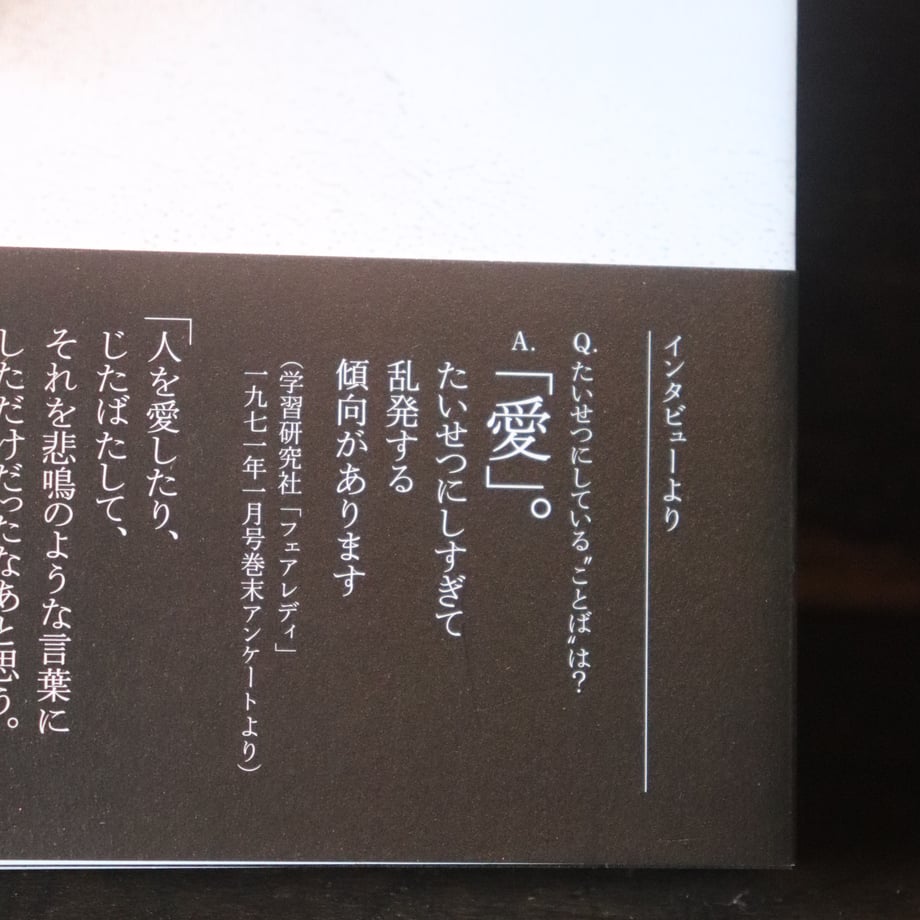 インタビューより
Q.たいせつにしている〝ことば〟は？
A.「愛」。
たいせつにしすぎて
乱発する
傾向があります
（学習研究社「フェアレディ」
一九七一年一月号巻末アンケートより）
「人を愛したり、
じたばたして、
それを悲鳴のような言葉に
しただけだったなあと思う。